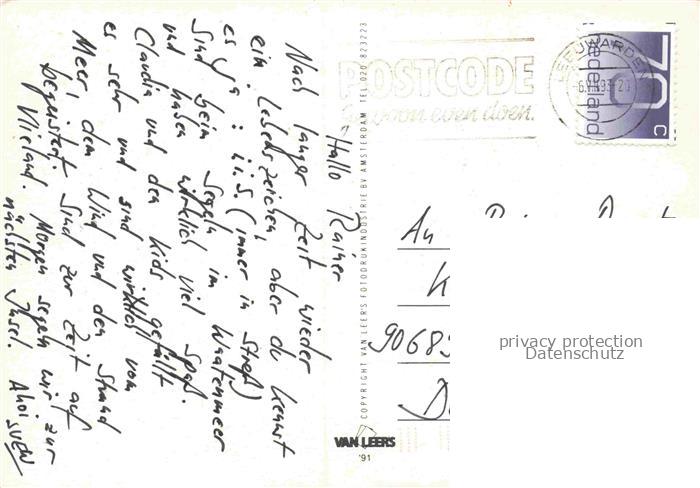 Hallo Rainer
Nach langer Zeit wieder
ein Lebenszeichen, aber du kennst
es ja: i.i.S. (immer in Streß)
Sind beim Segeln im Waatenmeer
und haben wirklich viel Spaß.
Claudia und den Kids gefällt
es sehr und sind wirklich vom
Meer, dem Wind und den Strand
begeistert. Sind zur Zeit auf
Vlieland. Morgen segeln wir zur
nächsten Insel. Ahoi
SVEN
COPYRIGHT VAN LEER'S FOTODRUKINDUSTRIE BV AMSTERDAM TEL 020-823223
VAN LEERS
'91
POSTCODE
Gewoon even doen.
LEEUWARDEN
nederland
70
c
An
K
9068
D
privacy protection
Datenschutz